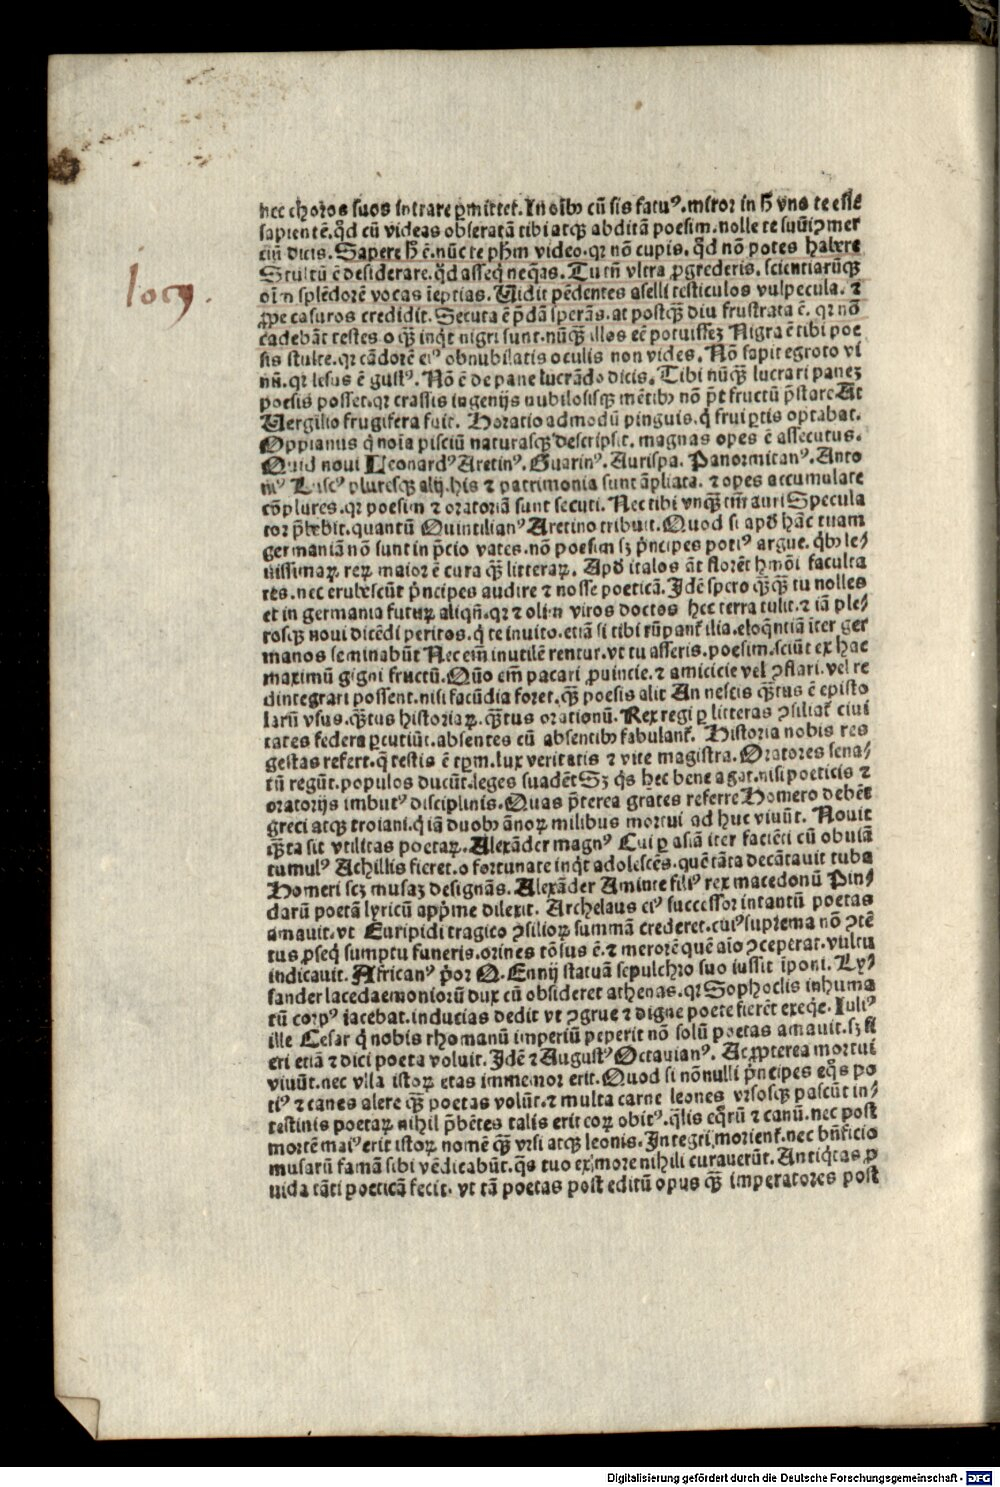 hec choros suos intrare ꝑmittet. In oīb⁹ cū sis fatu⁹. miror in ħ vno te esse
sapientē. qd̄ cū videas obseratā tibi atqꝫ abditā poesim. nolle te
dicis. Sapere ħ ē. nūc te pħm video. qꝛ nō cupis. qd̄ nō potes habere
Stultū ē desiderare. qd̄ asseq̄ neq̄as. Tu tn̄ vltra ꝓgrederis. scientiarūqꝫ
oīm splēdorē vocas īeptias. Uidit pēdentes aselli testiculos vulpecula. ⁊
ꝓpe casuros credidit. Secuta ē p̄dā sperās. at postqꝫ̄ diu frustrata ē. qꝛ nō
iocꝰ.
cadebāt testes o qꝫ̄ inq̇t nigri sunt. nūqꝫ̄ illos eē potuissez Nigra ē tibi poe
sis stulte. qꝛ cādorē ei⁹ obnubilatis oculis non vides. Nō sapit egroto vi
nū. qꝛ lesus ē gust⁹. Nō ē de pane lucrādo dicis. Tibi nūqꝫ̄ lucrari panez
poesis posset. qꝛ crassis ingenijs nubilosisqꝫ mētib⁹ nō p̄t fructū p̄stare At
Uergilio frugifera fuit. Horatio admodū pinguis. q̇ frui ꝑtis optabat.
Oppianus q̇ noīa pisciū naturasqꝫ descripsit. magnas opes ē assecutus.
Quid noui Leonard⁹ Aretin⁹. Guarin⁹. Aurispa. Panormitan⁹. Anto
ni⁹ Lusc⁹ pluresqꝫ alij. his ⁊ patrimonia sunt āpliata. ⁊ opes accumulate
cōplures. qꝛ poesim ⁊ oratoriā sunt secuti. Nec tibi vnqꝫ̄ tm̄ auri Specula
tor p̄bebit. quantū Quintilian⁹ Aretino tribuit. Quod si apd̄ hāc tuam
germaniā nō sunt in p̄cio vates. nō poesim sꝫ ṗncipes poti⁹ argue. q̇b⁹ le⸗
uissimaꝝ reꝝ maior ē cura qꝫ̄ litteraꝝ. Apd̄ italos āt florēt hmōi faculta
tes. nec erubescūt ṗncipes audire ⁊ nosse poeticā. Idē spero qꝫ̄qꝫ̄ tu nolles
et in germania futuꝝ aliqn̄. qꝛ ⁊ olim viros doctos hec terra tulit. ⁊ iā ple⸗
rosqꝫ noui dicēdi peritos. q̇ te inuito. etiā si tibi rūpant᷑ ilia. eloq̄ntiā iter ger
manos seminabūt Nec em̄ inutilē rentur. vt tu asseris. poesim. sciūt ex hac
maximū gigni fructū. Quō em̄ pacari ꝓuincie. ⁊ amicicie vel ꝯflari. vel re
dintegrari possent. nisi facūdia foret. qꝫ̄ poesis alit An nescis qꝫ̄tus ē episto
larū vsus. qꝫ̄tus historiaꝝ. qꝫ̄tus orationū. Rex regi ꝑ litteras ꝯsiliat᷑ ciui
tates federa ꝑcutiūt. absentes cū absentib⁹ fabulant᷑. Historia nobis res
gestas refert. q̄ testis ē tꝑm. lux veritatis ⁊ vite magistra. Oratores sena⸗
tū regūt. populos ducūt. leges suadēt Sꝫ q̇s hec bene agat. nisi poeticis ⁊
oratorijs imbut⁹ disciplinis. Quas p̄terea grates referre Homero debēt
greci atqꝫ troiani. q̇ iā duob⁹ ānoꝝ milibus mortui ad huc viuūt. Nouit
qꝫ̄ta sit vtilitas poetaꝝ. Alexāder magn⁹ Cui ꝑ asiā iter faciēti cū obuiā
tumul⁹ Achillis fieret. o fortunate inq̇t adolescēs. quē tāta decātauit tuba
Homeri scꝫ musaz designās. Alexāder Aminte fili⁹ rex macedonū Pin⸗
darū poetā lyricū appⁱme dilexit. Archelaus ei⁹ successor intantū poetas
amauit. vt Euripidi tragico ꝯsilioꝝ summā crederet. cui⁹ suprema nō ꝯtē
tus ꝓseq̇ sumptu funeris. crines tōsus ē. ⁊ merorē quē aīo ꝯceperat. vultu
indicauit. African⁹ pⁱor Q. Ennij statuā sepulchro suo iussit iponi. Ly⸗
sander lacedaemoniorū dux cū obsideret athenas. qꝛ Sophoclis inhuma
tū corp⁹ iacebat. inducias dedit vt ꝯgrue ⁊ digne poete fierēt exeq̄e. Iuli⁹
ille Cesar q̇ nobis rhomanū imperiū peperit nō solū poetas amauit. sꝫ fi
eri etiā ⁊ dici poeta voluit. Idē ⁊ August⁹ Octauian⁹. Ac ꝓpterea mortui
viuūt. nec vlla istoꝝ etas immemor erit. Quod si nōnulli ṗncipes eq̊s po
ti⁹ ⁊ canes alere qꝫ̄ poetas volūt. ⁊ multa carne leones vrsosqꝫ pascūt in⸗
testinis poetaꝝ nihil p̄bētes talis erit eoꝝ obit⁹. q̄lis eq̊rū ⁊ canū. nec post
mortē mai⁹ erit istoꝝ nomē qꝫ̄ vrsi atqꝫ leonis. Integri morient᷑. nec bn̄ficio
musarū famā sibi vēdicabūt. q̄s tuo ex more nihili curauerūt. Antiq̇tas ꝓ
uida tāti poeticā fecit. vt tā poetas post editū opus qꝫ̄ imperatores post
Digitalisierung gefördert durch die Deutsche Forschungsgemeinschaft - DFG